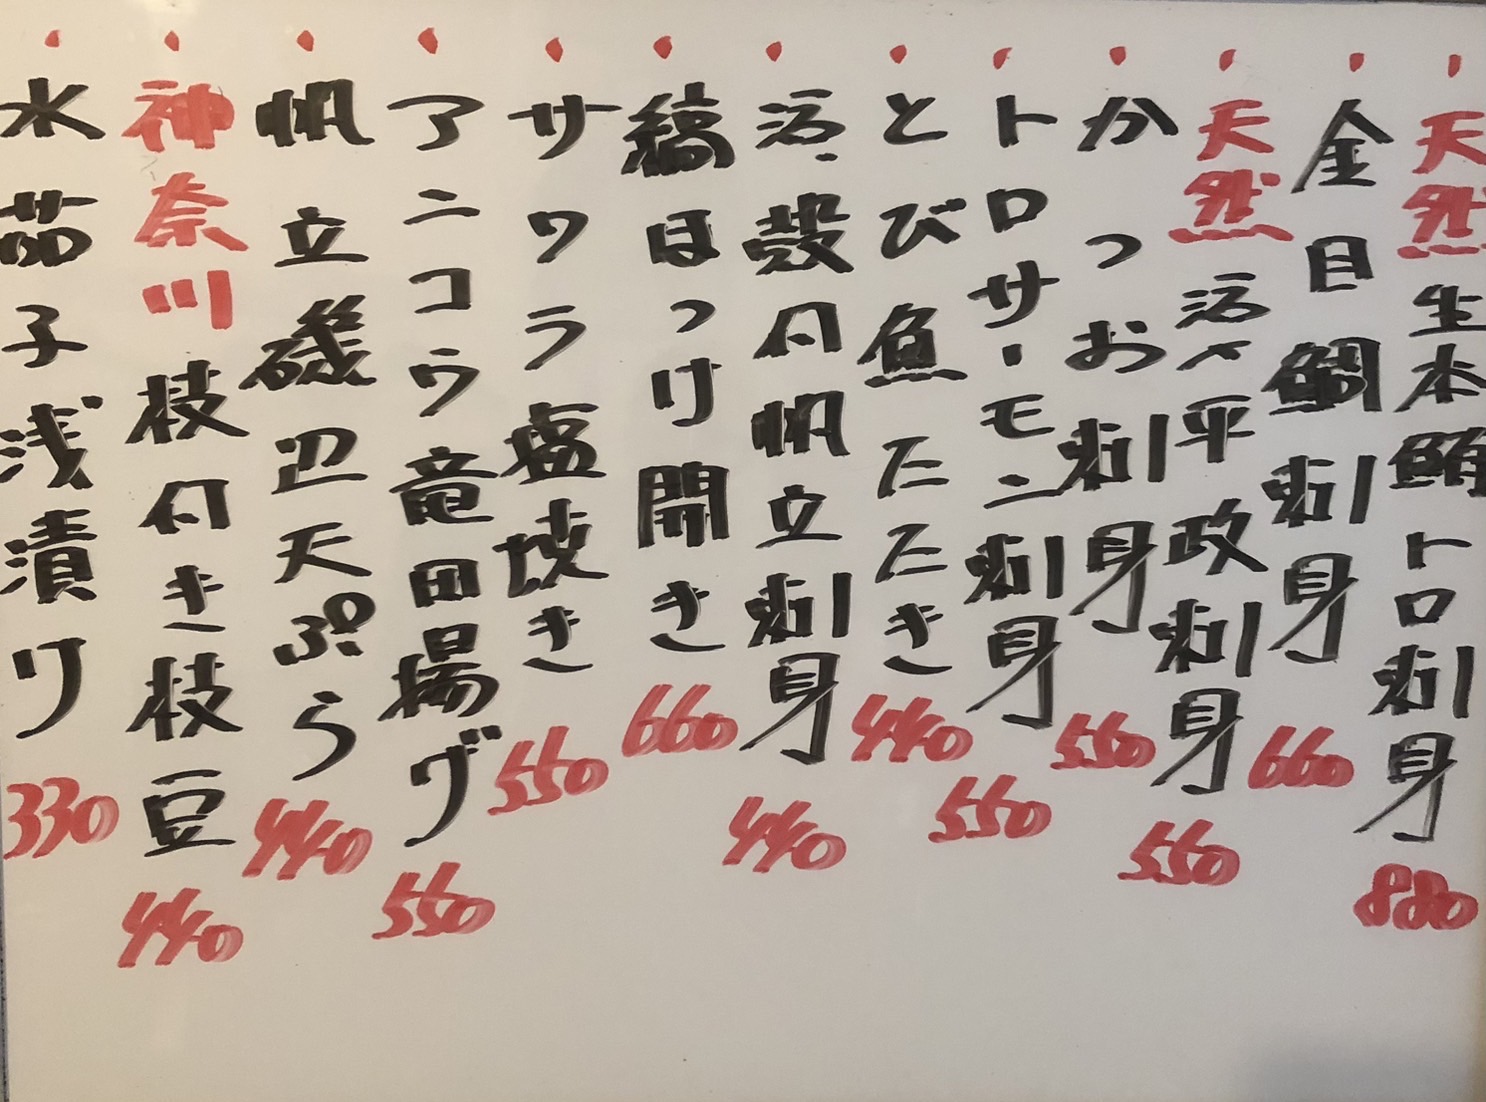 ・天然生本鮪トロ刺身 880
・金目鯛刺身 660
・天然活〆平政刺身 550
・かつお刺身 550
・トロサーモン刺身 550
・とび魚たたき 440
・活殻付帆立刺身 440
・縞ほっけ開き 660
・サワラ塩焼き 550
・アンコウ竜田揚げ 550
・帆立磯辺天ぷら 440
・神奈川枝付き枝豆 440
・水茄子浅漬け 330